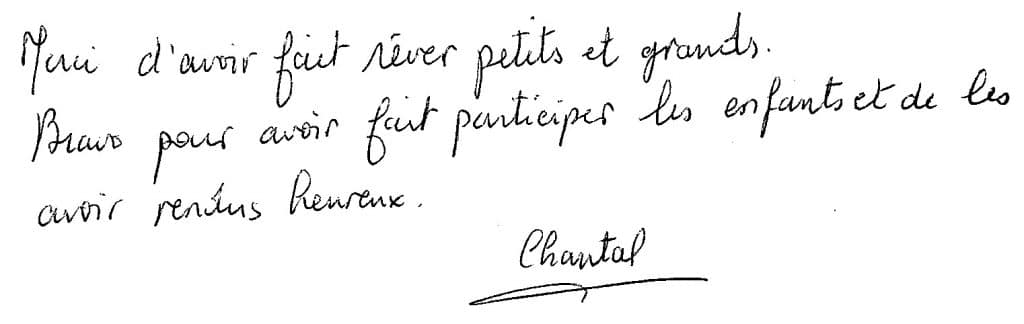 Merci d'avoir fait rêver petits et grands.
Bravo pour avoir fait participer les enfants et de les
avoir rendus heureux.
Chantal